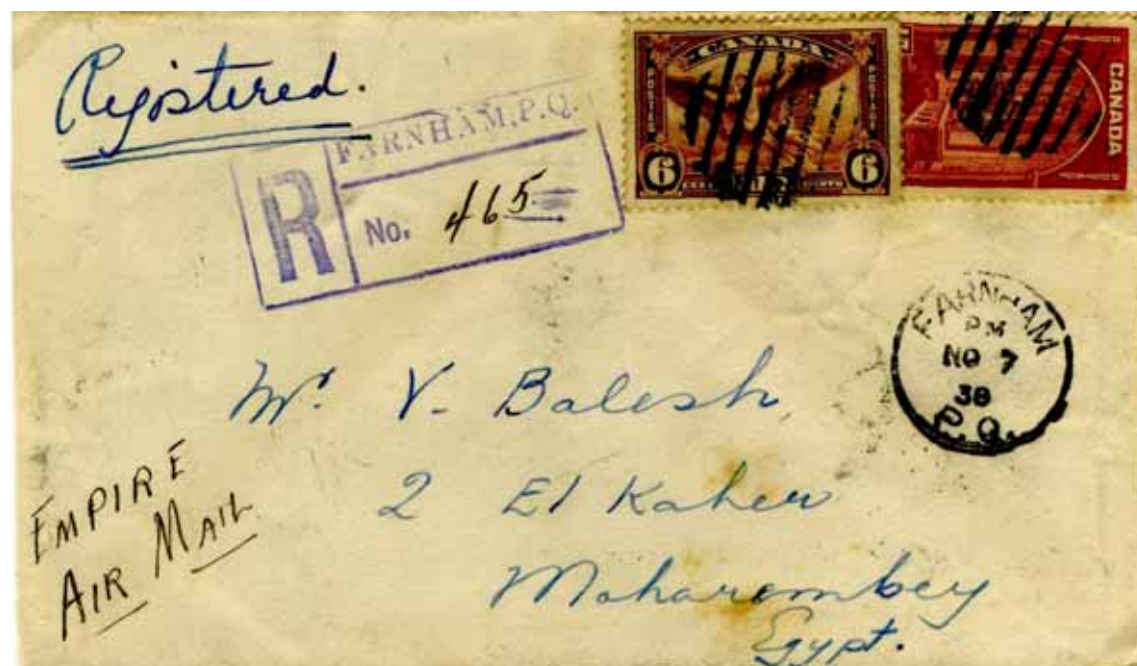 Registered.
FARNHAM, P.Q.
R
No. 465
CANADA
POSTES
POSTAGE
6 6
CANADA
FARNHAM
PM
NO 7
38
P.Q.
Mr. V. Balesh
2 El Kaher
Moharembey
Egypt.
EMPIRE
AIR MAIL